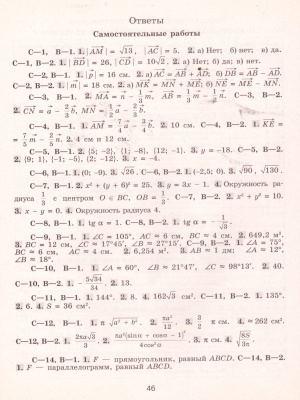 Ответы
Самостоятельные работы
С—1, В—1. 1. |AM| = √13, |AC| = 5. 2. а) Нет; б) нет; в) да.
С—1, В—2. 1. |BD| = 26, |CD| = 10√2. 2. а) Нет; б) нет; в) да.
С—2, В—1. 1. |p| = 16 см. 2. а) AC = AB + AD; б) DB = AB − AD.
С—2, В—2. 1. |m| = 18 см. 2. а) MK = MN + ME; б) NE = ME − MN.
С—3, В—1. 2. MA = n − 1/3 m, AB = 1/3 m − 1/3 n. С—3, В—2.
2. CN = a − 2/3 b, MN = 1/2 a − 2/3 b.
С—4, В—1. 1. AM = 2. 10 см. С—4, В—2. 1. KE =
2. 4 см и 12 см.
С—5, В—1. 2. {5; −2}, {1; −8}, {12; −1}. 3. y = −18. С—5, В—2.
2. {9; 1}, {−1; −5}, {2; −12}. 3. x = −4.
С—6, В—1. 1. (0; −9). 3. √26. С—6, В—2. 1. (−2,5; 0). 3. √90, √130.
С—7, В—1. 2. x² + (y + 6)² = 25. 3. y = 3x − 1. 4. Окружность ра-
диуса 1/3 с центром O ∈ BC, OB = С—7, В—2. 2. x² + y² = 10.
3. x − y = 0. 4. Окружность радиуса 4.
С—8, В—1. 1. tg α = 1. С—8, В—2. 1. tg α = −
С—9, В—1. 1. ∠C = 105°, AC ≈ 6 см, BC ≈ 4 см. 2. 649,2 м².
3. BC ≈ 12 см, ∠C ≈ 17°45′, ∠B ≈ 27°15′. С—9, В—2. 1. ∠A = 75°,
BC ≈ 6 см, AC ≈ 4 см. 2. 6,254 м². 3. AB ≈ 1 дм; ∠A ≈ 12°,
∠B ≈ 18°.
С—10, В—1. 1. ∠A = 60°, ∠B ≈ 21°47′, ∠C ≈ 98°13′. 2. 40.
С—10, В—2. 1. − 5√34/34. 2. 13.
С—11, В—1. 1. 144°. 2. 8. 4. 162√3 см². С—11, В—2. 1. 135°.
2. 6. 4. S = 36 см².
С—12, В—1. 1. π√(a² + b²). 2. πa²/12. 3. 3/2 π см. 4. ≈ 262 см².
С—12, В—2. 1. 2πa√3/3. 2. πa²(sin α + cos α − 1)²/4cos² α. 4. √(8S/3π).
С—14, В—1. 1. F — прямоугольник, равный ABCD. С—14, В—2.
1. F — параллелограмм, равный ABCD.
46